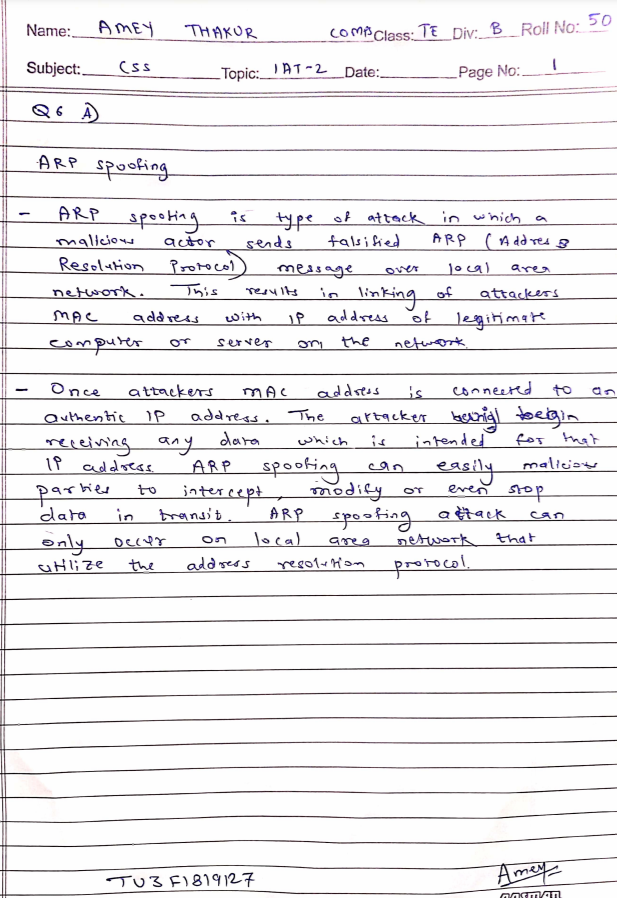 Name: AMEY THAKUR COMPS Class: TE Div: B Roll No: 50
Subject: CSS Topic: IAT-2 Date: Page No: 1
Q6 A)
ARP spoofing
- ARP spoofing is type of attack in which a
malicious actor sends falsified ARP (Address
Resolution Protocol) message over local area
network. This results in linking of attackers
MAC address with IP address of legitimate
computer or server on the network
- Once attackers MAC address is connected to an
authentic IP address. The attacker begin
receiving any data which is intended for that
IP address. ARP spoofing can easily malicious
parties to intercept, modify or even stop
data in transit. ARP spoofing attack can
only occur on local area network that
utilize the address resolution protocol.
TU3F1819127
Amey